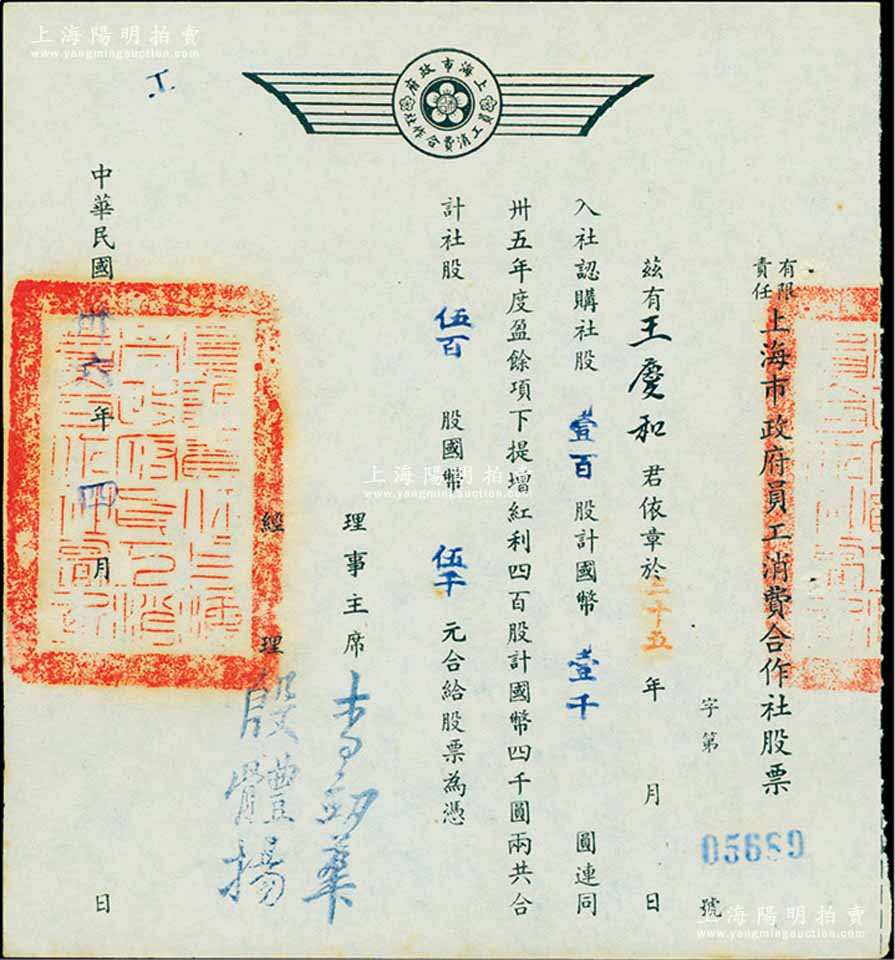 上海陽明拍賣
www.yangmingauction.com
上海市政府
員工消費合作社
有限責任上海市政府員工消費合作社股票
字第05689號
茲有王慶和君依章於三十五年 月 日
入社認購社股壹百股計國幣壹千圓連同
卅五年度盈餘項下提增紅利四百股計國幣四千圓兩共合
計社股伍百股國幣伍千元合給股票為憑
理事主席
經理殷體揚
中華民國卅六年四月 日
工
上海陽明拍賣
www.yangmingauction.com
上海陽明拍賣
www.yangmingauction.com